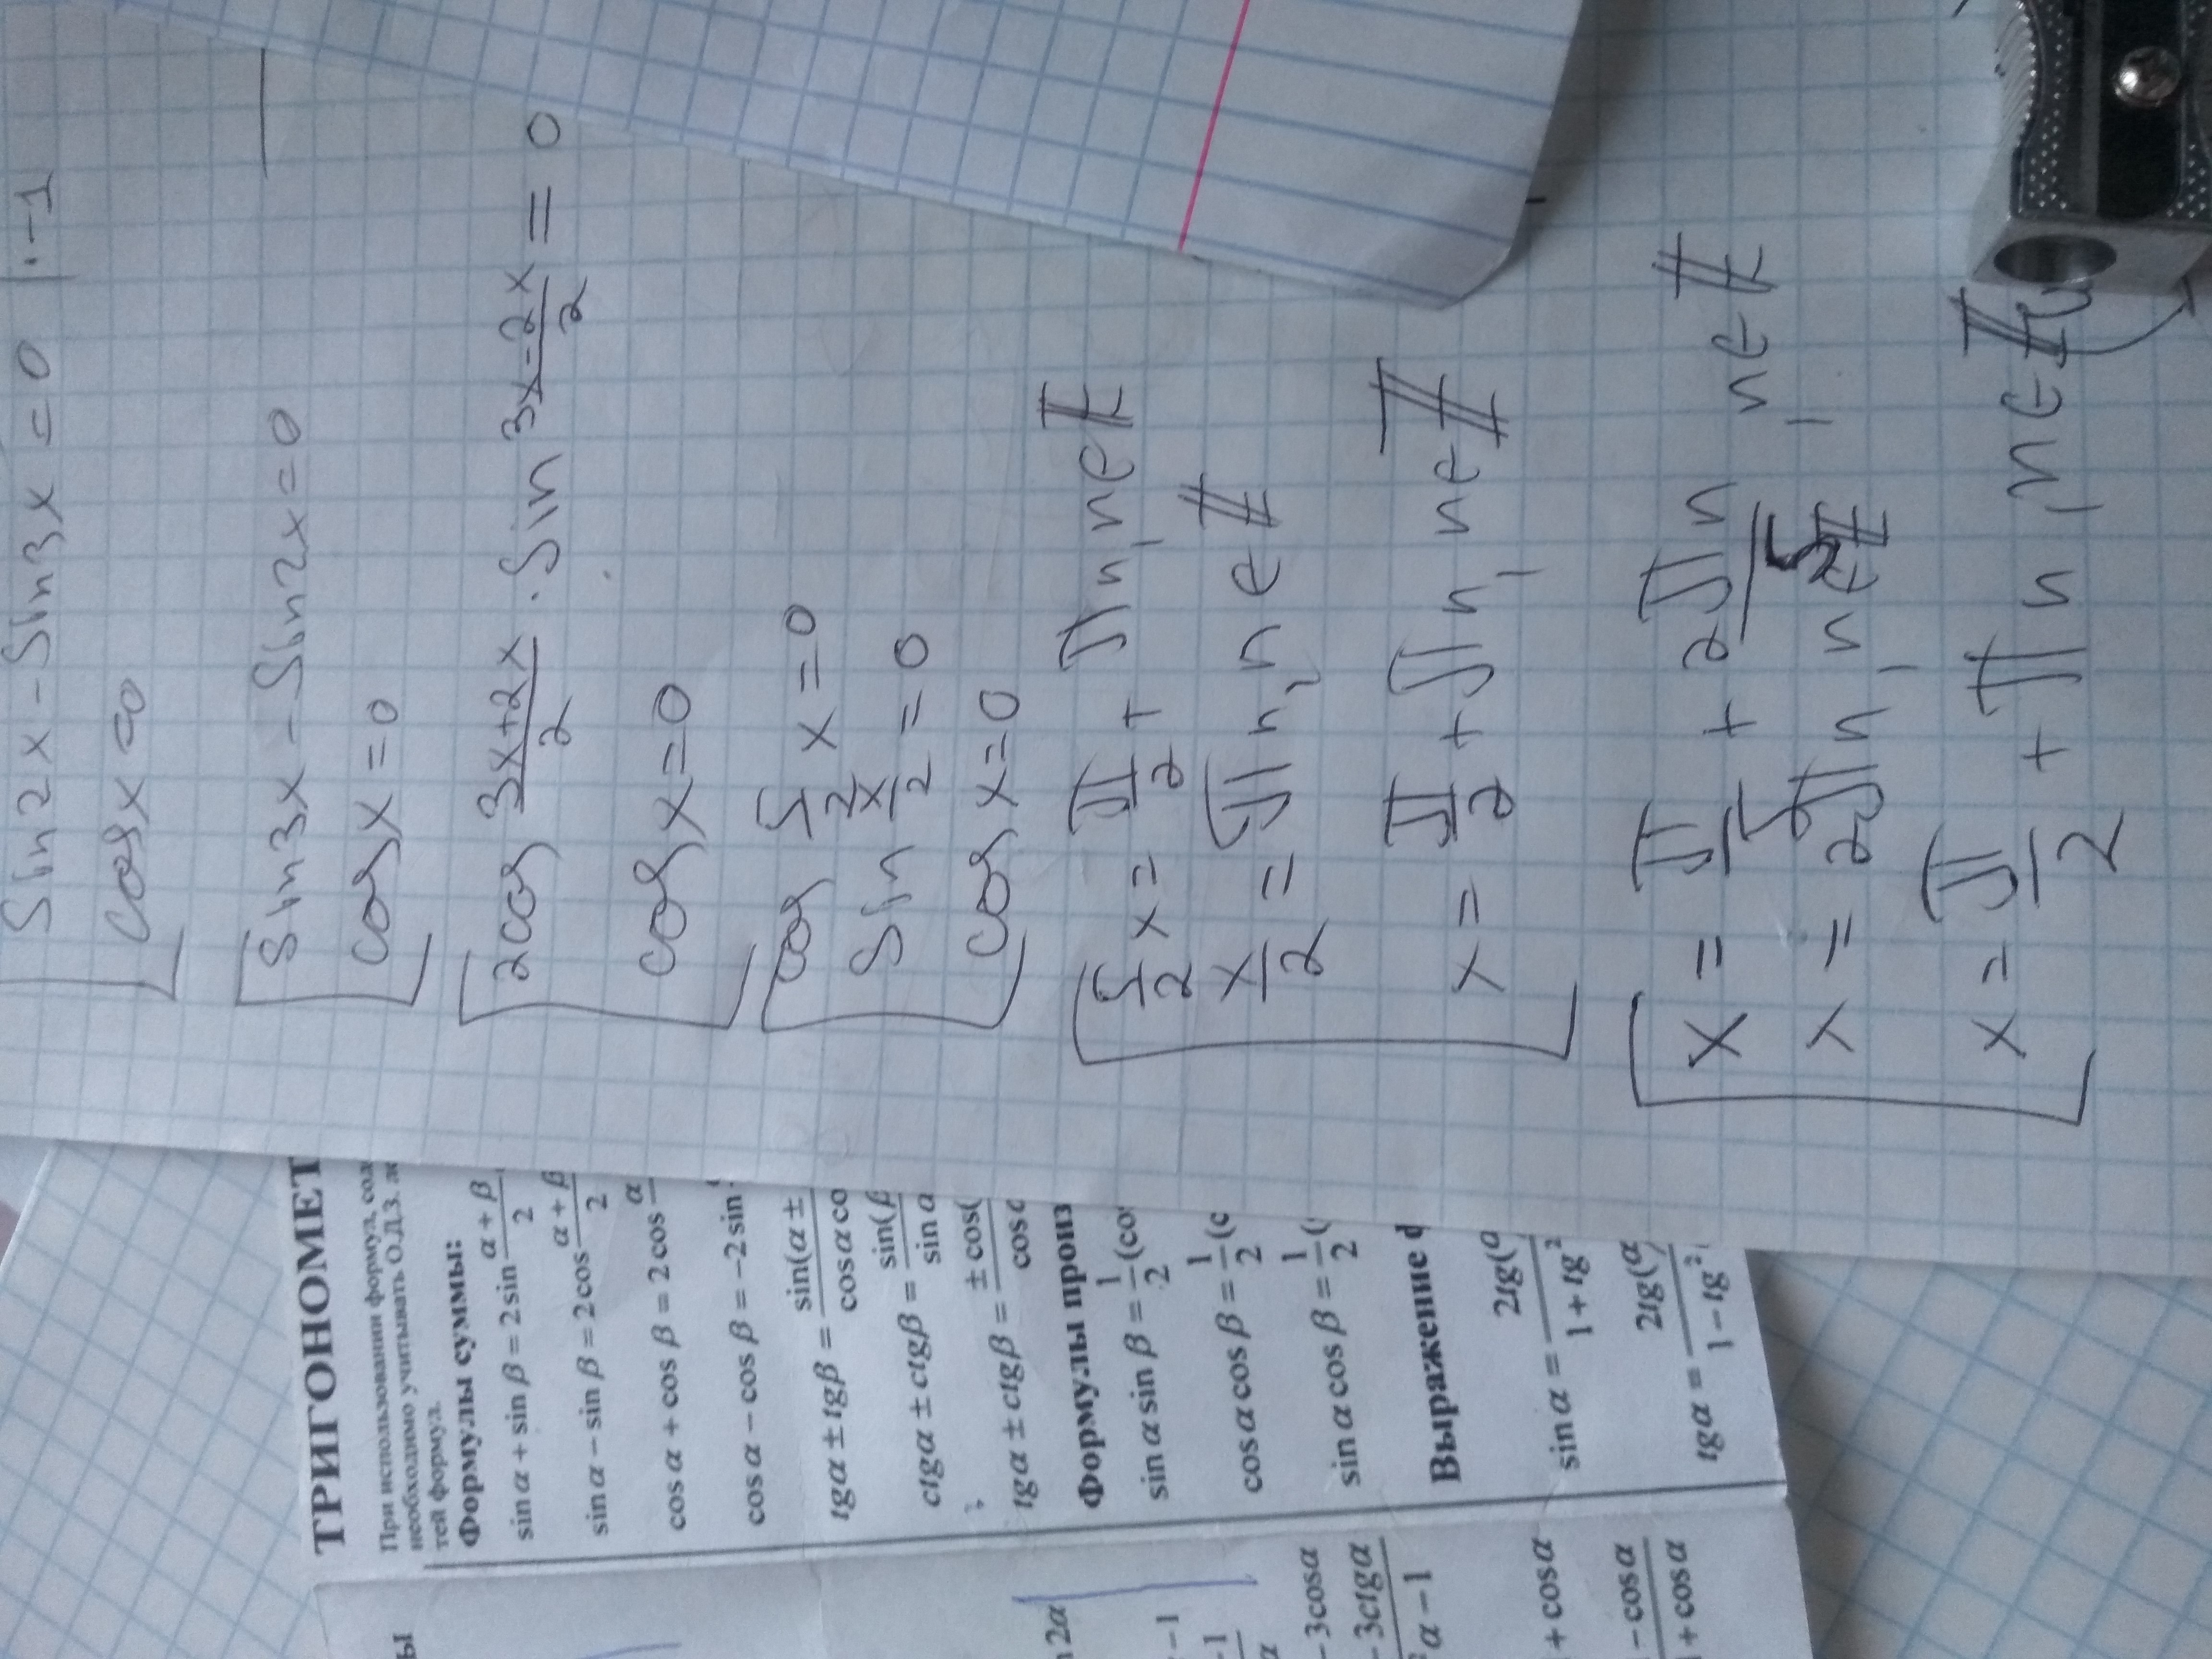 sin2x - sin3x = 0 |·-1
cosx=0
sin3x - sin2x=0
cosx=0
2cos (3x+2x)/2 · sin (3x-2x)/2 = 0
cosx=0
cos 5/2 x=0
sin x/2 = 0
cosx=0
5/2 x= π/2 + πn, n∈Z
x/2 = πn, n∈Z
x= π/2 + πn, n∈Z
x = π/5 + 2πn/5, n∈Z
x = 2πn, n∈Z
x = π/2 + πn, n∈Z
ТРИГОНОМЕТ
При использовании формул, сод
необходимо учитывать О.Д.З.
тей формул.
Формулы суммы:
sin α + sin β = 2 sin (α + β)/2
sin α − sin β = 2 cos (α + β)/2
cos α + cos β = 2 cos α
cos α − cos β = −2 sin
tgα ± tgβ = sin(α ± / cos α co
ctgα ± ctgβ = sin(β / sin α
tgα ± ctgβ = ± cos( / cos α
Формулы произ
sin α sin β = 1/2 (co
cos α cos β = 1/2 (c
sin α cos β = 1/2 (
Выражение
sin α = 2tg(α / 1 + tg²
tgα = 2tg(α / 1 − tg²
ы
2α
− 1
− 1
α
− 3cosα
− 3ctgα
α − 1
+ cosα
− cosα
+ cosα